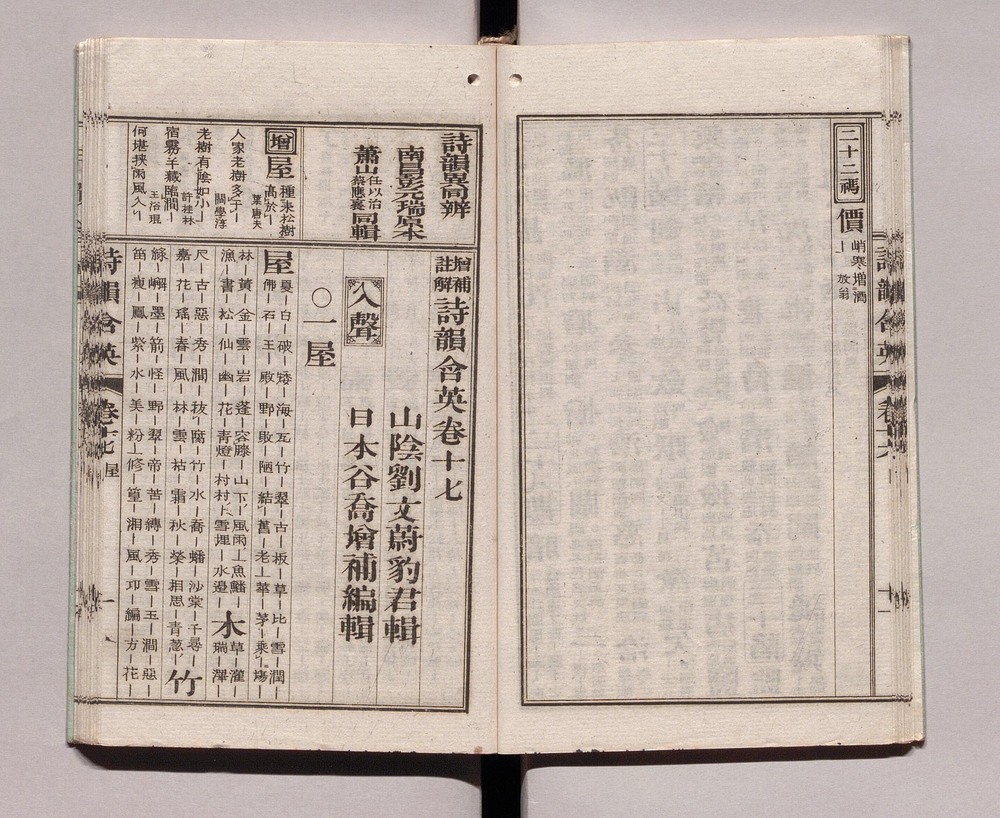 二十二禡
價
峭寒增酒
｜放翁
詩韻含英
卷十六
十一
詩韻異同辨
南昌彭元瑞原本
蕭山任以治蔡應襄同輯
增
屋
種来松樹
高於｜葉唐夫
人家老樹多于｜
閩學淳
老樹有陰如小｜
許桂林
宿霧半藏臨澗｜
何堪挾雨風入｜
增補註解詩韻含英卷十七
山陰劉文蔚豹君輯
日本谷喬增補編輯
入聲
〇一屋
屋
夏｜白｜破｜矮｜海｜瓦｜竹｜翠｜古｜板｜草｜比｜雪｜潤｜
佛｜石｜王｜殿｜野｜敗｜陋｜結｜舊｜老｜華｜茅｜乘｜
林｜黃｜金｜雲｜岩｜蓬｜容膝｜山下｜風雨｜魚鱗｜木草｜灌｜
漁｜書｜松｜仙｜幽｜花｜青燈｜村村｜雪埋｜水邊｜瑞｜澤｜
尺｜古｜惡｜秀｜澗｜拔｜腐｜竹｜水｜喬｜蟠｜沙棠｜千尋｜竹
嘉｜花｜瑤｜春｜風｜林｜雲｜枯｜霜｜秋｜榮｜相思｜青葱｜
綠｜嶰｜墨｜箭｜怪｜野｜翠｜帝｜苦｜縛｜秀｜雪｜玉｜澗｜惡｜
笛｜瘦｜鳳｜紫｜水｜美｜粉｜修｜篁｜湘｜風｜邛｜編｜方｜花｜
詩韻含英
卷十七
屋
一